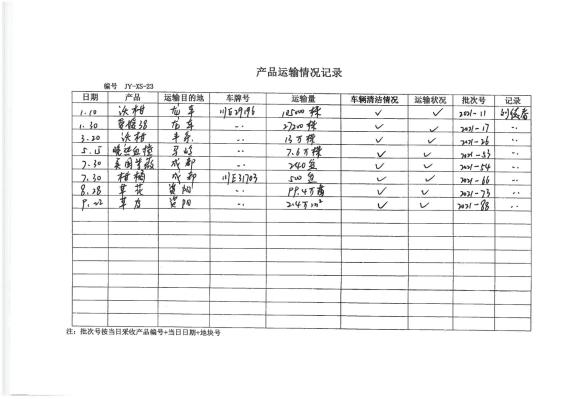 产品运输情况记录
编号 JY-XS-23
日期 产品 运输目的地 车牌号 运输量 车辆清洁情况 运输状况 批次号 记录
1.10 沃柑 川E29496 12500株 ✓ ✓ 2021-11
1.30 27200株 ✓ ✓ 2021-17
3.20 沃柑 13万株 ✓ ✓ 2021-26
5.15 7.6万株 ✓ ✓ 2021-53
7.30 成都 240盆 ✓ ✓ 2021-54
7.30 柑橘 成都 川E31703 500盆 ✓ ✓ 2021-66
8.28 草花 资阳 ✓ ✓ 2021-73
9.22 草皮 资阳 2.4万m² ✓ ✓ 2021-88
注：批次号按当日采收产品编号+当日日期+地块号